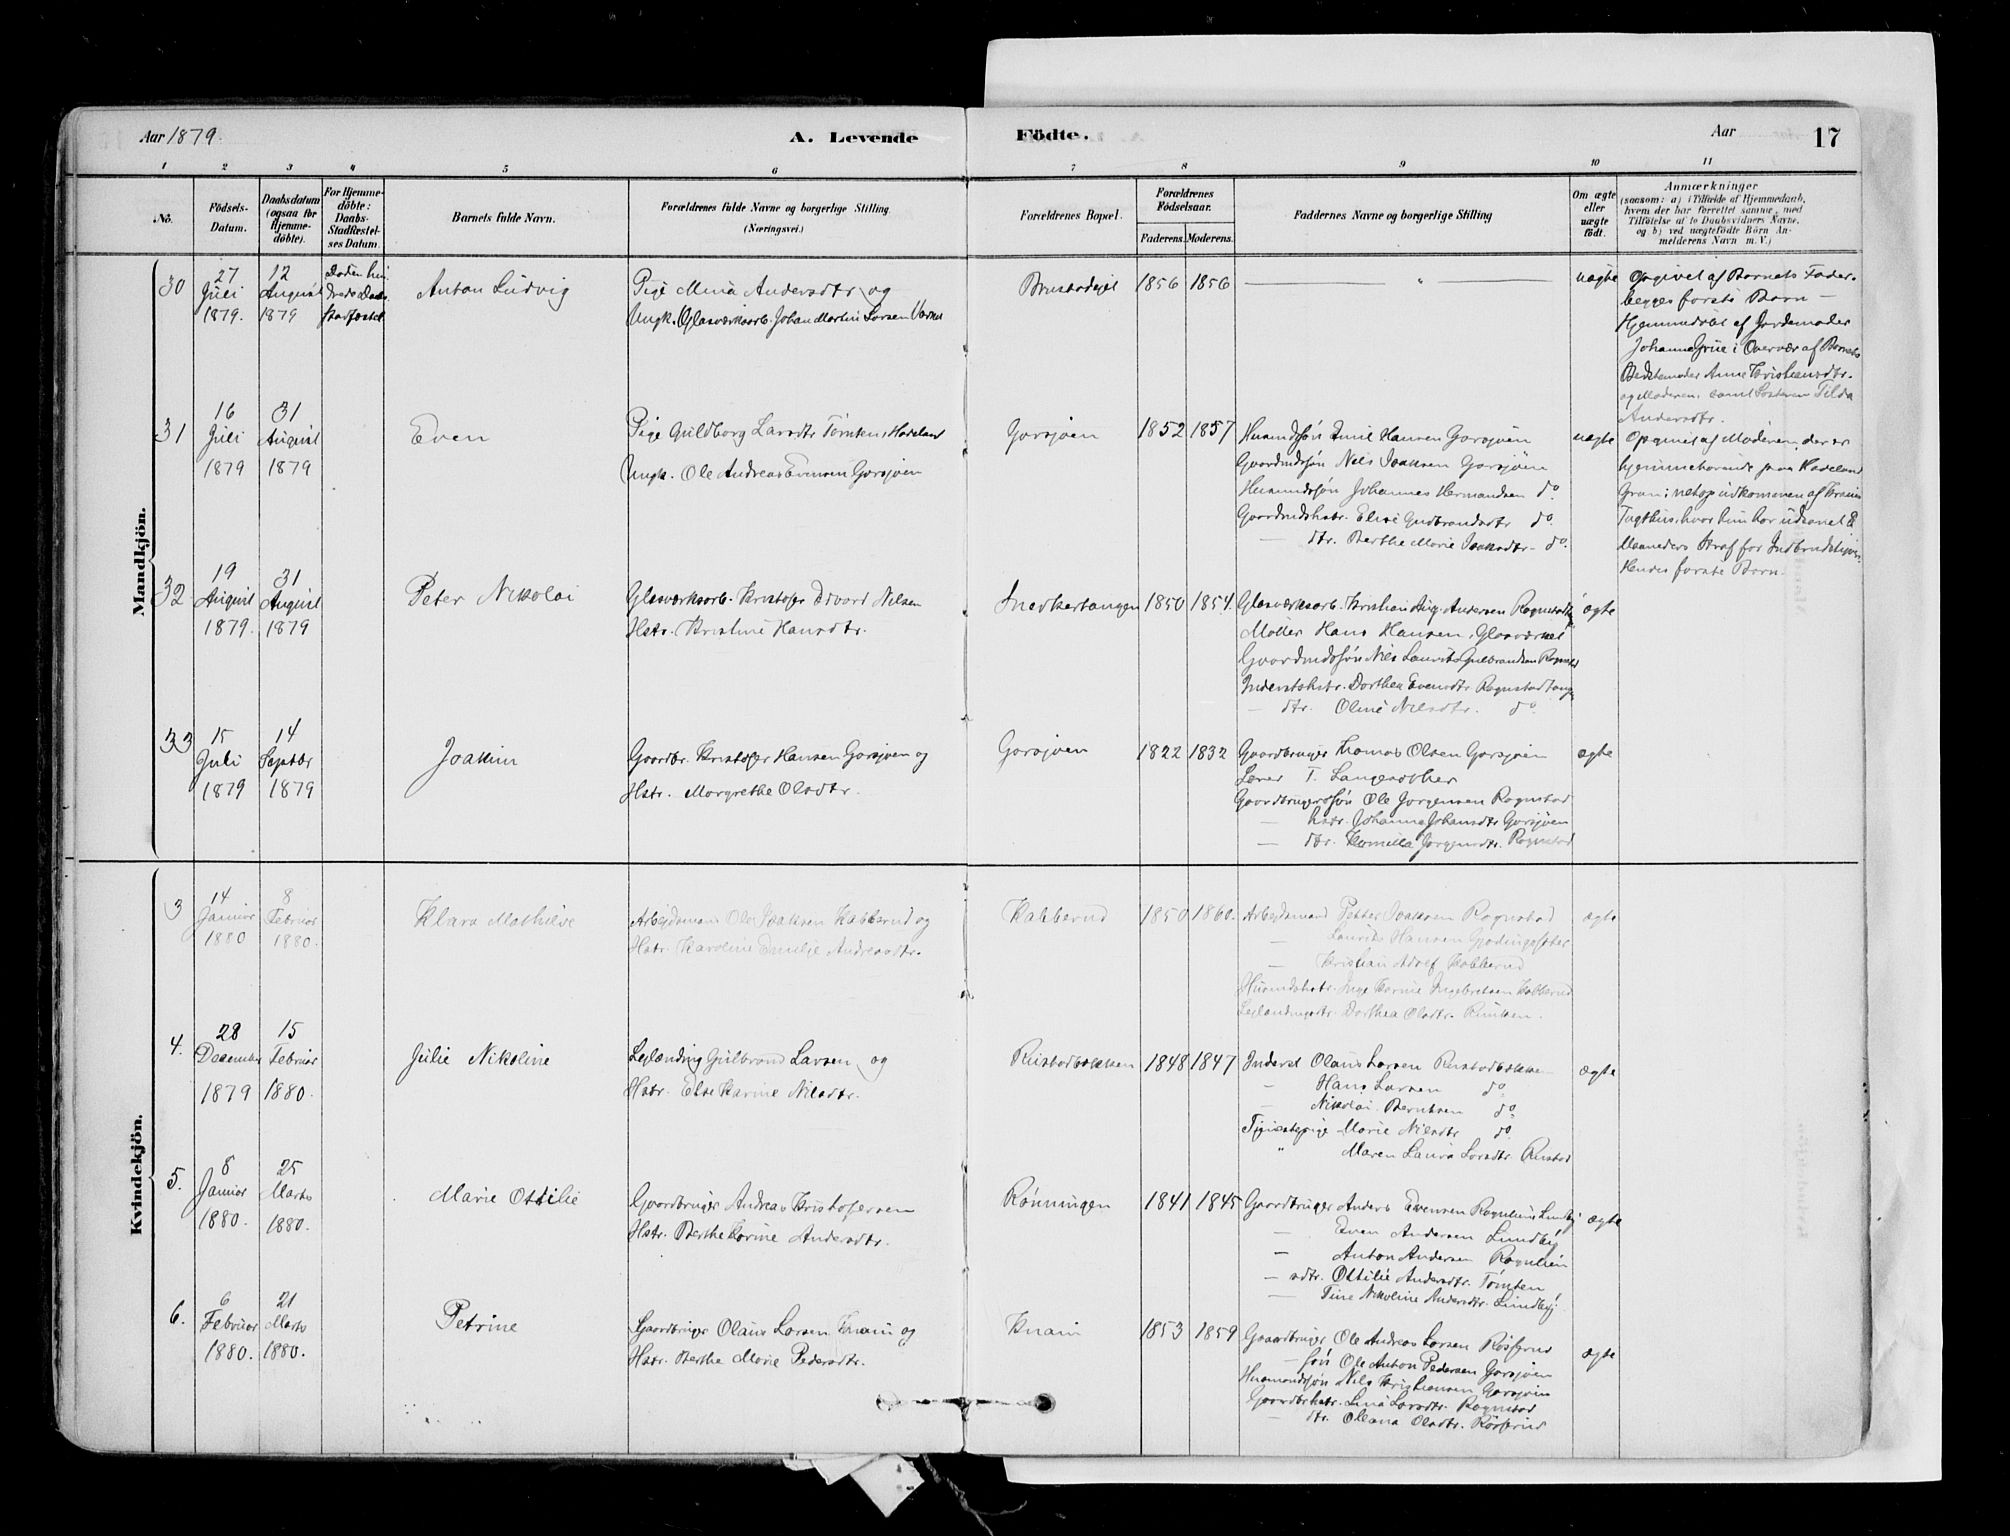 Aar 1879.
A. Levende Födte.
Aar
17
1 2 3 4 5 6 7 8 9 10 11
No.
Födsels-Datum.
Daabsdatum (ogsaa for Hjemme-döbte).
For Hjemme-döbte: Daabs-Stadfæstel-ses Datum.
Barnets fulde Navn.
Forældrenes fulde Navne og borgerlige Stilling (Næringsvei.)
Forældrenes Bopæl.
Forældrenes Födselsaar.
Faderens. Moderens.
Faddernes Navne og borgerlige Stilling
Om ægte eller uægte födt.
Anmærkninger
(saasom: a) i Tilfælde af Hjemmedaab, hvem der har forrettet samme, med Tilföielse af to Daabsvidners Navne, og b) ved uægtefödte Börn An-melderens Navn m. V.)
Mandkjön.
30
27 Juli 1879.
12 August 1879
Anton Ludvig
Pige Mina Andersdtr og
Ungk. Glasværksarb. Johan Martin Larsen
1856 1856
uægte
Opgivet af Barnets Fader.
begges første Barn —
Hjemmedøbt af Jordemoder
Johanne Grue i Overvær af Barnets
Bedstemoder Anne Kristiansdtr.
og Moderen, samt Søsteren Tilda
Andersdtr.
31
16 Juli 1879
31 August 1879
Even
Pige Guldborg Larsdtr Tømten Hadeland
Ungk. Ole Andreas Evensen Gorsjøen
Gorsjøen
1852 1857
Husmdssøn Emil Hansen Gorsjøen
Gaardmdssøn Nils Isaksen Gorsjøen
Husmdssøn Johannes Hermandsen do.
Gaardmdshstr. Elise Gudbrandsdtr do.
— dtr. Berthe Marie Isaksdtr. do.
uægte
Opgivet af Moderen, der er
hjemmehørende paa Hadeland
Gran; netop udkommen af
Tugthus, hvor hun har udsonet 8
Maaneders Straf for
Hendes første Barn.
32
19 August 1879.
31 August 1879
Peter Nikolai
Glasværksarb. Kristofer Edvard Nilsen
Hstr. Kristine Hansdtr.
Snedkertangen
1850 1854.
Glasværksarb. Kristian Aug. Andersen
Møller Hans Hansen, Glasværket
Gaardmdssøn Nils Laurits Gulbrandsen
Inderstshstr. Dorthea Evensdtr
— dtr. Oline Nilsdtr. do.
ægte
33
15 Juli 1879
14 Septbr 1879
Joakim
Gaardbr. Kristofer Hansen Gorsjøen og
Hstr. Margrethe Olsdtr.
Gorsjøen
1822 1832
Gaardbruger Thomas Olsen Gorsjøen
Lærer T. Langesæther
Gaardbrugerssøn Ole Jørgensen Rognstad
— hstr. Johanne Johansdtr Gorsjøen
— dtr. Kornilla Jørgensdtr. Rognstad
ægte
Kvindekjön.
3
14 Januar 1880
8 Februar 1880.
Klara Mathilde
Arbejdsmand Ole Isaksen Kabberud og
Hstr. Karoline Emilje Andreasdtr.
Kabberud
1850 1860.
Arbejdsmand Petter Isaksen Rognstad
— Laurits Hansen
— Kristian Adolf Kabberud
Husmdshstr. Inge Karine Ingebretsen Kabberud
Dorthea Olsdtr.
ægte
4.
28 December 1879
15 Februar 1880.
Julie Nikoline
Lejlænding Gulbrand Larsen og
Hstr. Else Karine Nilsdtr.
Rustadbakken
1848 1847
Inderst Olaus Larsen Rustadbakken
— Hans Larsen do
— Nikolai Berntsen do
Tjenestepige Marie Nilsdtr do
" Maren Laura Larsdtr Rustad
ægte
5.
8 Januar 1880.
25 Marts 1880.
Marie Ottilie
Gaardbruger Andreas Kristofersen
Hstr. Berthe Karine Andersdtr.
Rønningen
1841 1845
Gaardbruger Anders Evensen
— Even Andersen Lundby
— Anton Andersen Rognlien
— dtr. Ottilie Andersdtr. Tømten
— Tine Nikoline Andersdtr. Lundby
ægte
6.
6 Februar 1880.
21 Marts 1880.
Petrine
Gaardbruger Olaus Larsen Knai og
Hstr. Berthe Marie Pedersdtr.
Knai
1853 1859
Gaardbruger Ole Andreas Larsen Røiserud
— søn Ole Anton Pedersen Gorsjøen
Husmandssøn Nils Kristiansen Gorsjøen
Gaardbrhstr. Lina Larsdtr. Rognstad
— dtr. Oleana Olsdtr. Røiserud
ægte